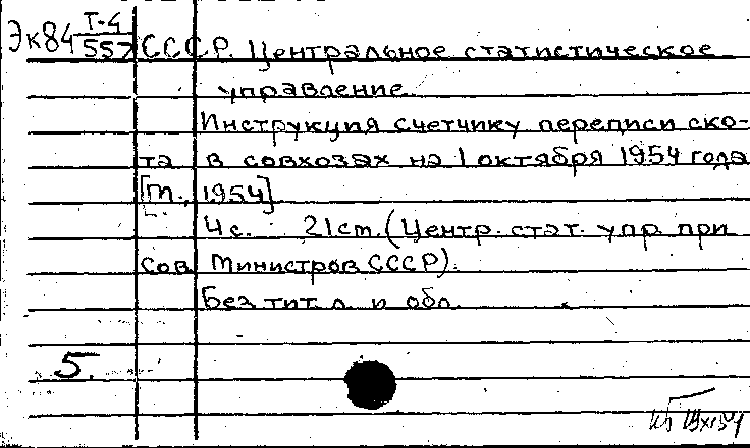 Эк84 Т-4
557
СССР. Центральное статистическое
управление.
Инструкция счетчику переписи ско-
та в совхозах на 1 октября 1954 года
[М., 1954]
4 с. 21 см. (Центр. стат. упр. при
Сов Министров СССР).
Без тит. л. и обл.
5.